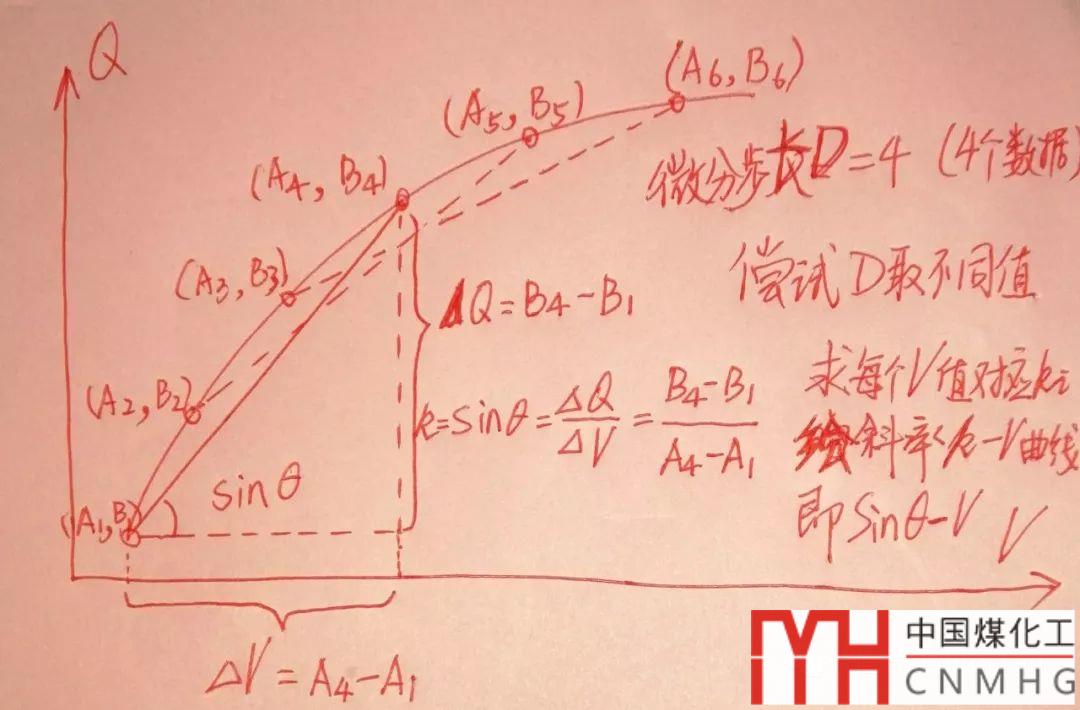 Q
(A6, B6)
(A5, B5)
微分步长D=4 (4个数据)
(A4, B4)
(A3, B3)
尝试D取不同值
ΔQ=B4-B1
(A2, B2)
k=sinθ=ΔQ/ΔV=B4-B1/A4-A1
求每个V值对应k值
绘斜率k-V曲线
即Sinθ-V
sinθ
(A1, B1)
V
ΔV=A4-A1
MH
中国煤化工
CNMHG